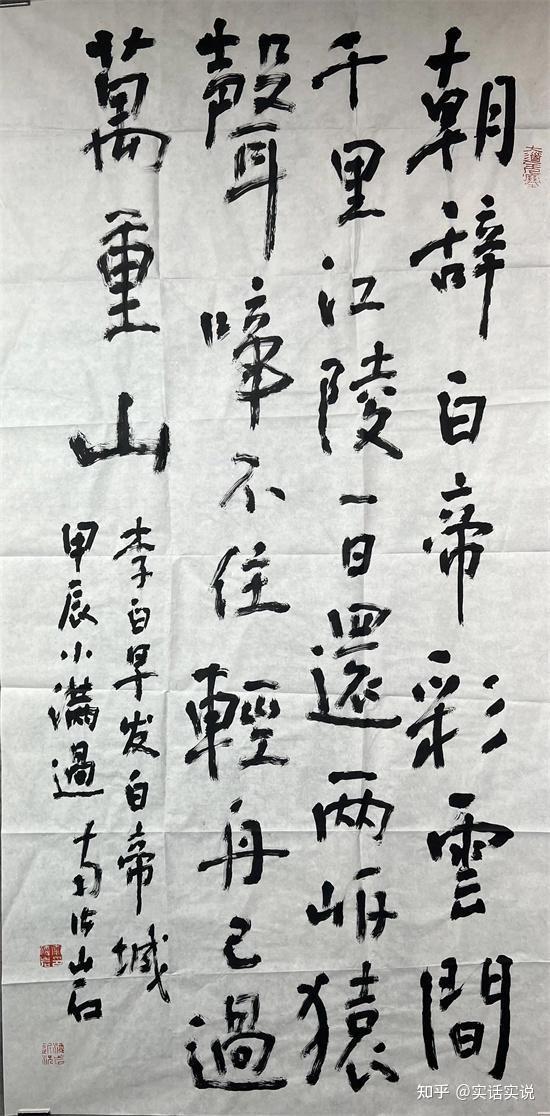 朝辞白帝彩雲間
千里江陵一日還两岸猿
聲啼不住輕舟已過
萬重山
李白早发白帝城
甲辰小滿過山石
知乎 @实话实说